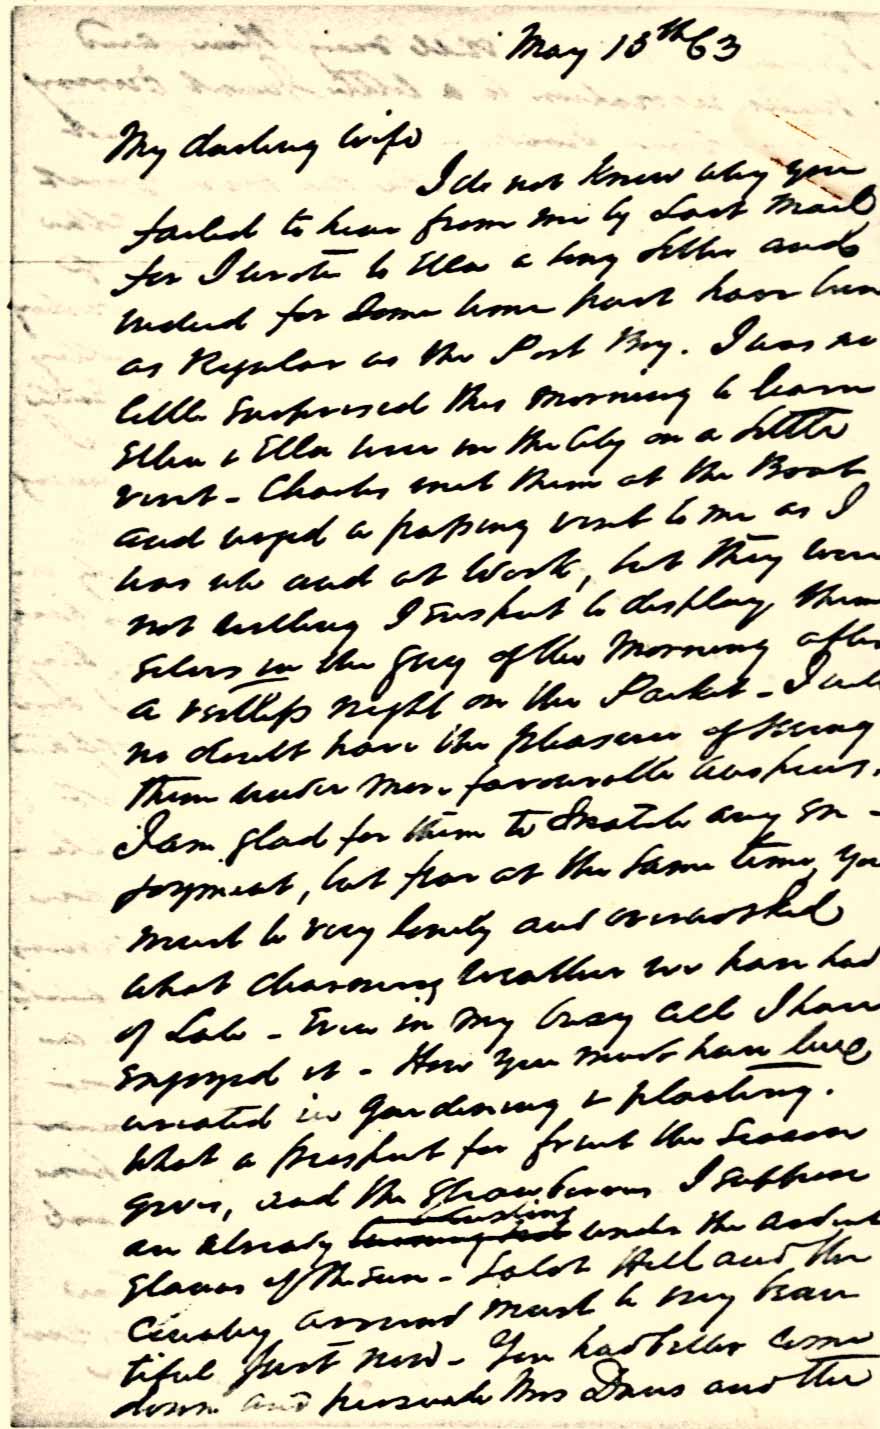 May 13th 63
My darling Wife
I do not know why you
failed to hear from me by Last Mail
for I wrote to Ella a long letter and
indeed for Some time past have been
as Regular as the Post Boy. I was no
little Surprised this Morning to learn
Ellen & Ella were in the City on a little
visit - Charles met them at the Boat
and urged a passing visit to me as I
was up and at Work, but they were
not willing I suspect to display them
selves in the grey of the Morning after
a restless night on the Packet - I will
no doubt have the pleasure of seeing
them under more favourable auspices.
I am glad for them to Snatch any en-
joyment, but fear at the Same time, you
must be very lonely and overworked
What charming Weather we have had
of Late - Even in my busy cell I have
enjoyed it - How you must have luxu
uriated in gardening & planting.
What a prospect for fruit the Season
gives, and the Strawberries I suppose
are already blushing under the ardent
glances of the Sun - Hill and the
Country around must be very beau
tiful just now - You had better come
down and persuade Mrs and the